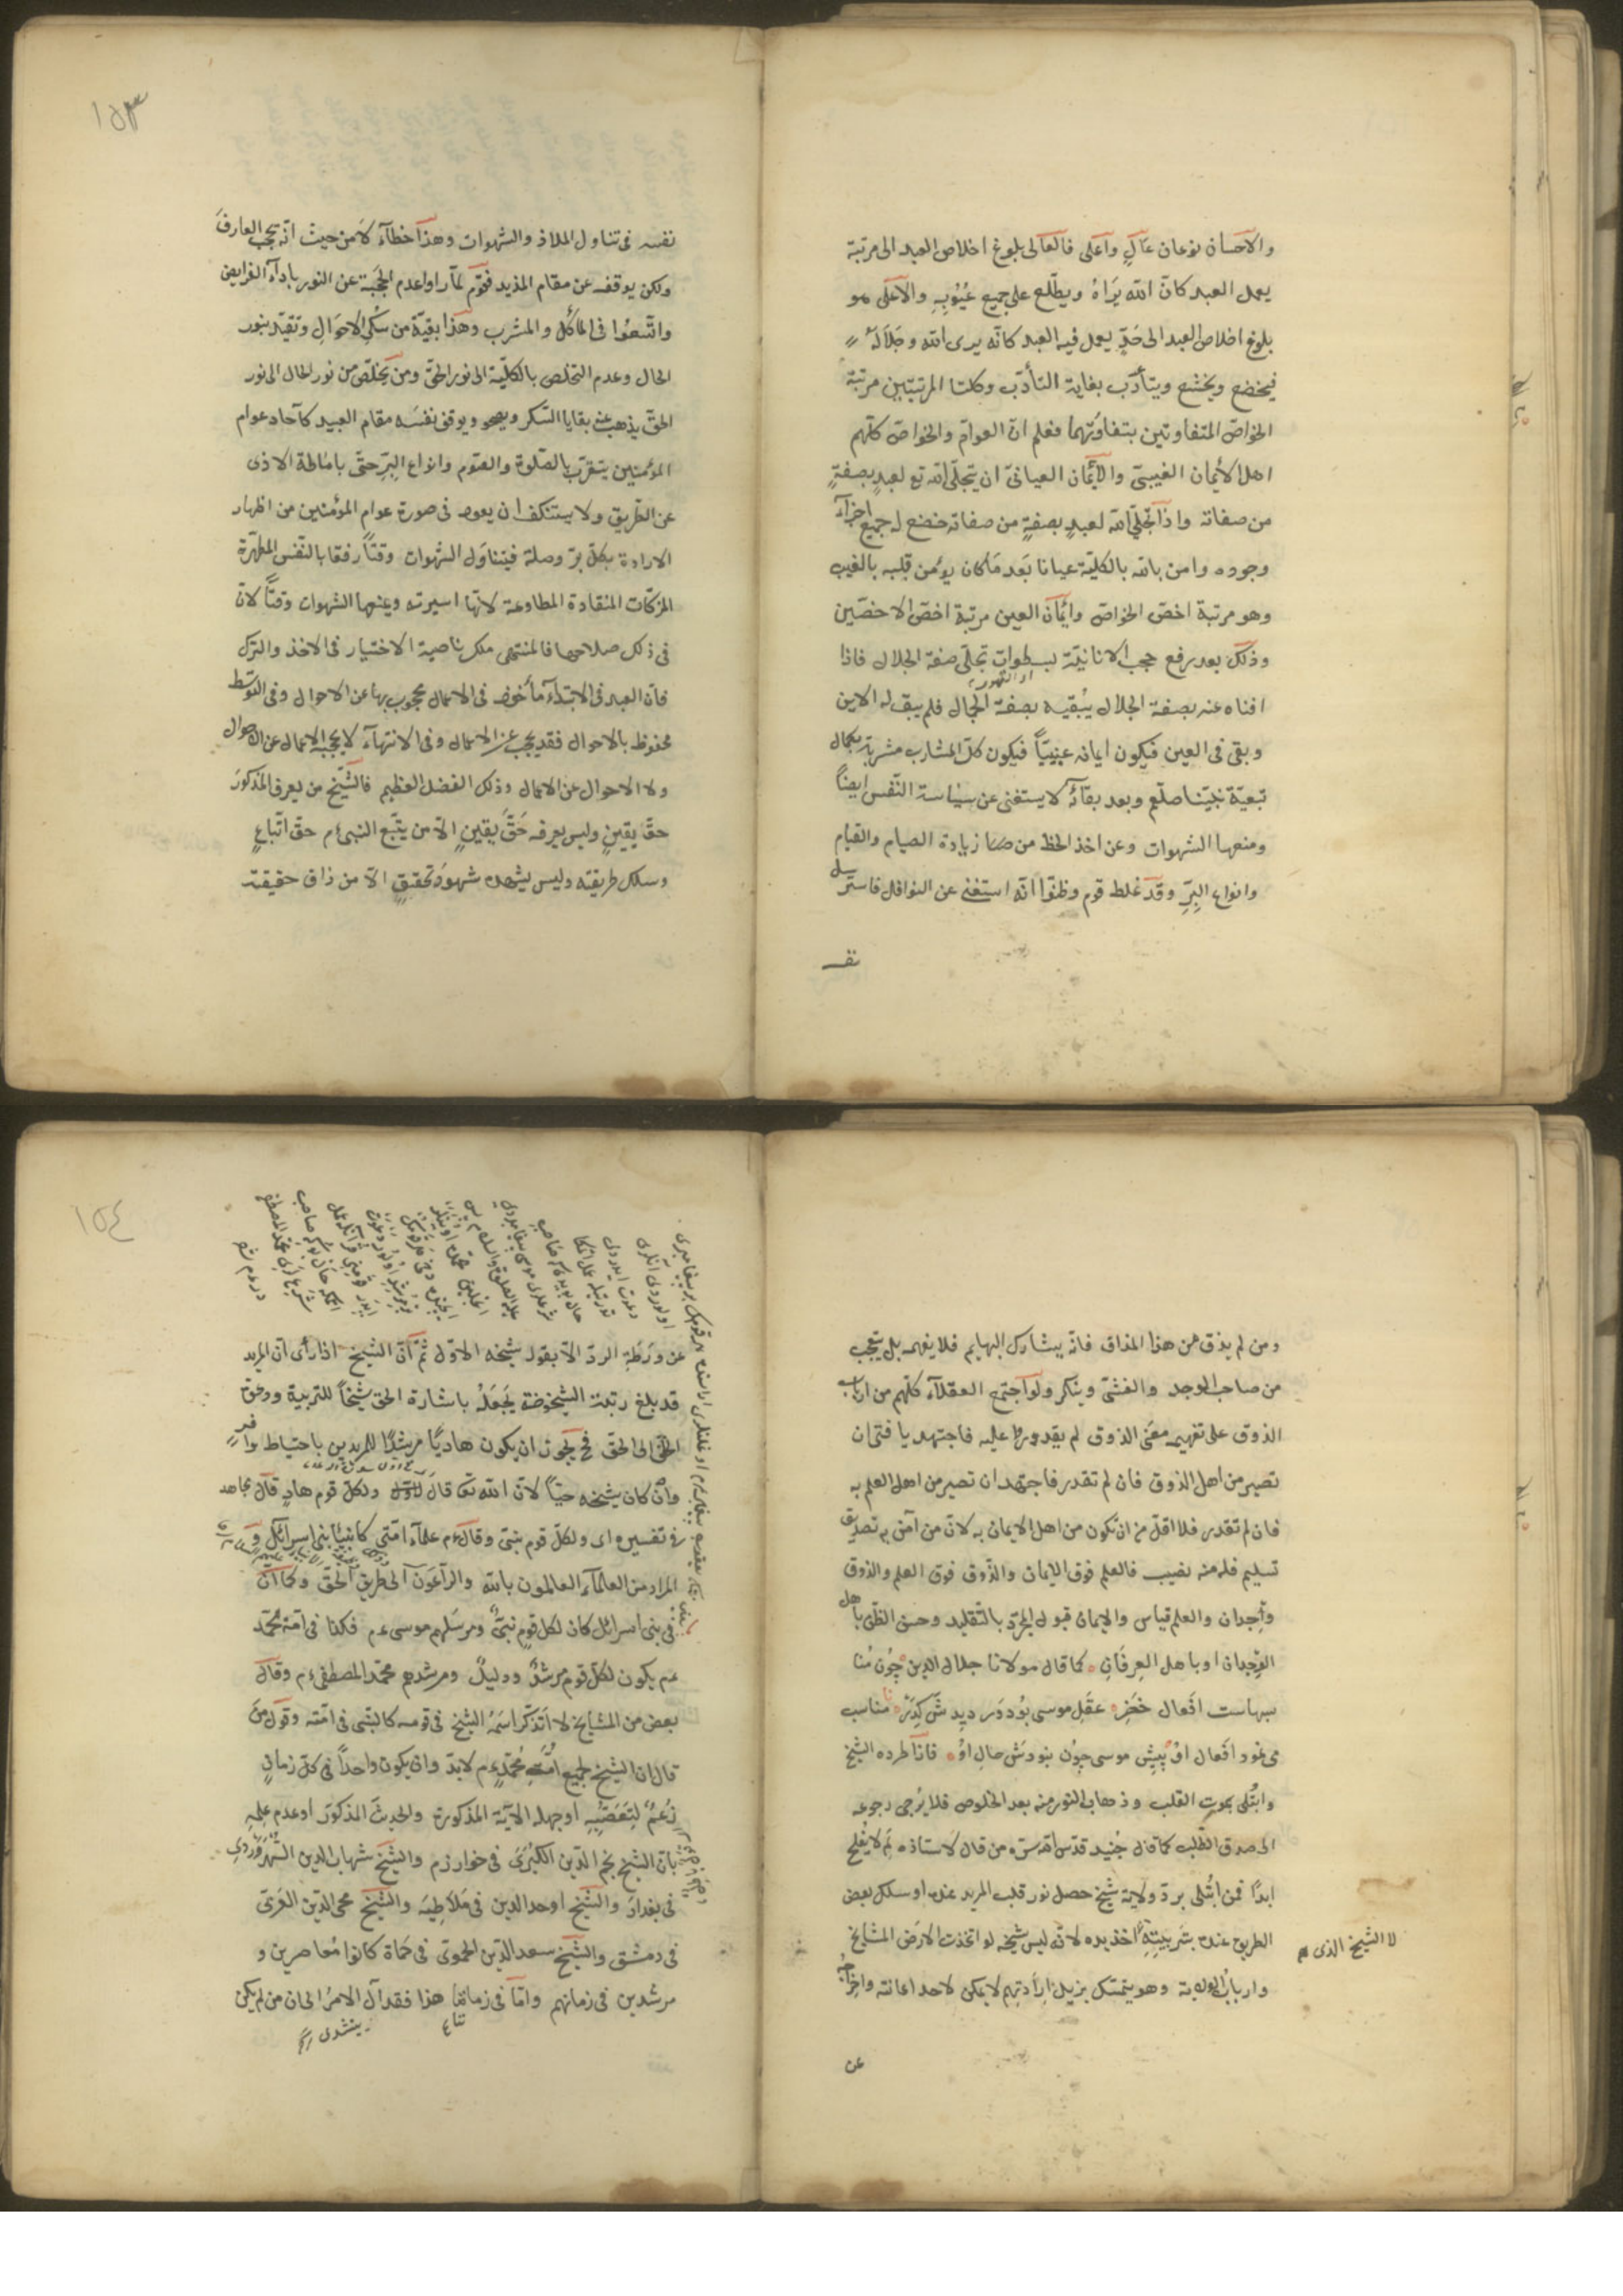 والاحسان نوعان عالٍ واعلى فالعالى بلوغ اخلاص العبد الى مرتبة
يعمل العبد كانّ الله يَراهُ ويطّلع على جميع عُيُوبِهِ والاعلى هو
بلوغ اخلاص العبد الى حَدٍّ يعمل فيه العبد كانّه يرى الله وجلاله
فيخضع ويخشع ويتأدّب بغاية التأدّب وكلتا المرتبتين مرتبة
الخواصّ المتفاوتين بتفاوتهما فعلم انّ العوامّ والخواصّ كلّهم
اهل الأيمان الغيبىّ والأيمان العيانىّ ان يتجلّى الله تع لعبدٍ بصفةٍ
من صفاته واذا تجلّى الله لعبدٍ بصفةٍ من صفاته خضع له جميع اجزآء
وجوده وامن بالله بالكليّة عيانا بَعد مَا كان يؤمن قلبه بالغيب
وهو مرتبة اخصّ الخواصّ وايمان العين مرتبة اخصّ الاخصّين
وذلك بعد رفع حجب الانانيّة بسطوات تجلّى صفة الجلال فاذا
افناه عنه بصفة الجلال يُبقيه بصفة الجمال فلم يبق له الاين
وبقى فى العين فيكون ايمانه عينيّاً فيكون كلّ المشارب مشربه بكمال
تبعيّة نبيّنا صلّعم وبعد بقآئه لا يستغنى عن سياسة النّفس ايضاً
ومنعها الشهوات وعن اخذ الحظ من زيادة الصيام والقيام
وانواع البِرِّ وقد غلط قوم وظنّوا انّه استغنى عن النوافل فاسترسل
نفـ
١٥٣
نفسه فى تناول الملاذ والشهوات وهذا خطآء لا من حيث انّه يحجب العارف
ولكن يوقف عن مقام المزيد فقوم لمّا راوا عدم الحجبة عن النور بادآء الفرايض
واتّسعُوا فى المأكل والمشرب وهذا بقيّة من سُكْرِ الاحوال وتقيّد بنور
الحال وعدم التخلص بالكليّة الى نور الحقّ ومن تخلّص من نور الحال الى نور
الحقّ يذهب عنه بقايا السّكر ويصحو ويوقف نفسه مقام العبيد كآحاد عوام
المؤمنين يتقرّب بالصّلوة والصّوم وانواع البِرِّ حتّى باماطة الاذى
عن الطّريق ولا يستنكف ان يعود فى صورة عوام المؤمنين من اظهار
الارادة بكلّ برّ وصلة فيتناول الشهوات وقتاً رفقا بالنّفس المطهّرة
المزكّات المنقادة المطاوعة لانّها اسيرته ويمنعها الشهوات وقتاً لانّ
فى ذلك صلاحها فالمنتهى ملك ناصية الاختيار فى الاخذ والترك
فانّ العبد فى الابتدآء مأخوذ فى الاعمال محجوب بها عن الاحوال وفى التوسّط
محفوظ بالاحوال فقد يحجب عن الاعمال وفى الانتهآء لا يحجبه الاعمال عن الاحوال
ولا الاحوال عن الاعمال وذلك الفضل العظيم فالشّيخ من يعرف المذكور
حقّ يقينٍ وليس يعرفه حَقَّ يقينٍ الّا من يتّبع النبى عم حقّ اتّباعٍ
وسلك طريقته وليس يشهده شهود تحقيقٍ الّا من ذاق حقيقته
ومن لم يذق من هذا المذاق فانّه يشارك البهايم فلا يفهمه بل يتعجب
من صاحب الوجد والغشى وينكر ولو اجتمع العقلآء كلّهم من ارباب
الذوق على تفهيم معنى الذوق لم يقدروا عليه فاجتهد يا فتى ان
تصير من اهل الذوق فان لم تقدر فاجتهد ان تصير من اهل العلم به
فان لم تقدر فلا اقلّ من ان تكون من اهل الايمان به لانّ من آمن به تصديق
تسليم فله منه نصيب فالعلم فوق الايمان والذّوق فوق العلم والذوق
وِجدان والعلم قياس والايمان قبول المجرّد بالتّقليد وحسن الظّن باهل
الوِجدان او باهل العِرفانِ كما قال مولانا جلال الدين چُون مُنا
سبهاست افعال خضر عقل موسى بُود دَر ديدش كدِر نا مناسب
مى نمود افعال او پيش موسى چون نبودش حال او فاذا طرده الشيخ
وابتُلى بموت القلب وذهاب النّور منه بعد الخلوص فلا يُرجى رجوعه
الى صدق الطّلب كما قال جُنيد قدّس الله سرّه من قال لاستاذه لِمَ لا يفلح
ابدًا فمن ابتُلى بردّ ولاية شيخٍ حصل نور قلب المريد عنده او سلك بعض
الطريق عنده بتربيته اخذ يده لانّه ليس شيخه لو اتخذت الارض المشايخ
لا الشيخ الذى
وارباب الولاية وهو يتمسّك بزيل ارادتهم لا يمكن لاحد اعانته واخراجه
عن
١٥٤
عن ورَطَةِ الردّ الّا بقول شيخه الاوّل ثمّ انّ الشيخ اذا رأى انّ المريد
قد بلغ رتبة الشيخوخة يَجعَلُه باشارة الحق شيخاً للتربية ودعوة
الخلق الى الحقّ فح يجوز ان يكون هاديًا مرشدًا للمريدين باحتياط وافرٍ
وان كان شيخه حيّاً لانّ الله تع قال ولكلّ قوم هادٍ قال مجاهد
فى تفسيره اى ولكلّ قوم نبىّ وقال عم علمآء امّتى كانبيآء بنى اسرائل و
المراد من العلمآء العالمون بالله والرّاعون الى طريق الحقّ وكما انّ
فى بنى اسرائل كان لكل قومٍ نبىٌّ ومرسلهم موسى عم فكذا فى امّة محمّد
عم يكون لكلّ قوم مرشدٌ ودليلٌ ومرشدهم محمّد المصطفى عم وقال
بعض من المشايخ لا اتذكّر اسمَهُ الشيخ فى قومه كالنبى فى امّته وقول من
قال انّ الشيخ لجميع امّة محمّدٍ عم لا بدّ وان يكون واحداً فى كلّ زمانٍ
زعمٌ لتعصّبِهِ او جهله الآية المذكورة والحديث المذكور او عدم علمِهِ
بانّ الشيخ نجم الدّين الكُبرى فى خوارزم والشّيخ شهاب الدين السّهروردى
فى بغداد والشّيخ اوحد الدين فى ملاطيه والشّيخ محى الدّين العربىّ
فى دمشق والشّيخ سعد الدّين الحموى فى حماة كانوا معاصرين و
مرشدين فى زمانهم وامّا فى زماننا هذا فقد آل الامرُ الى ان من لم يكن